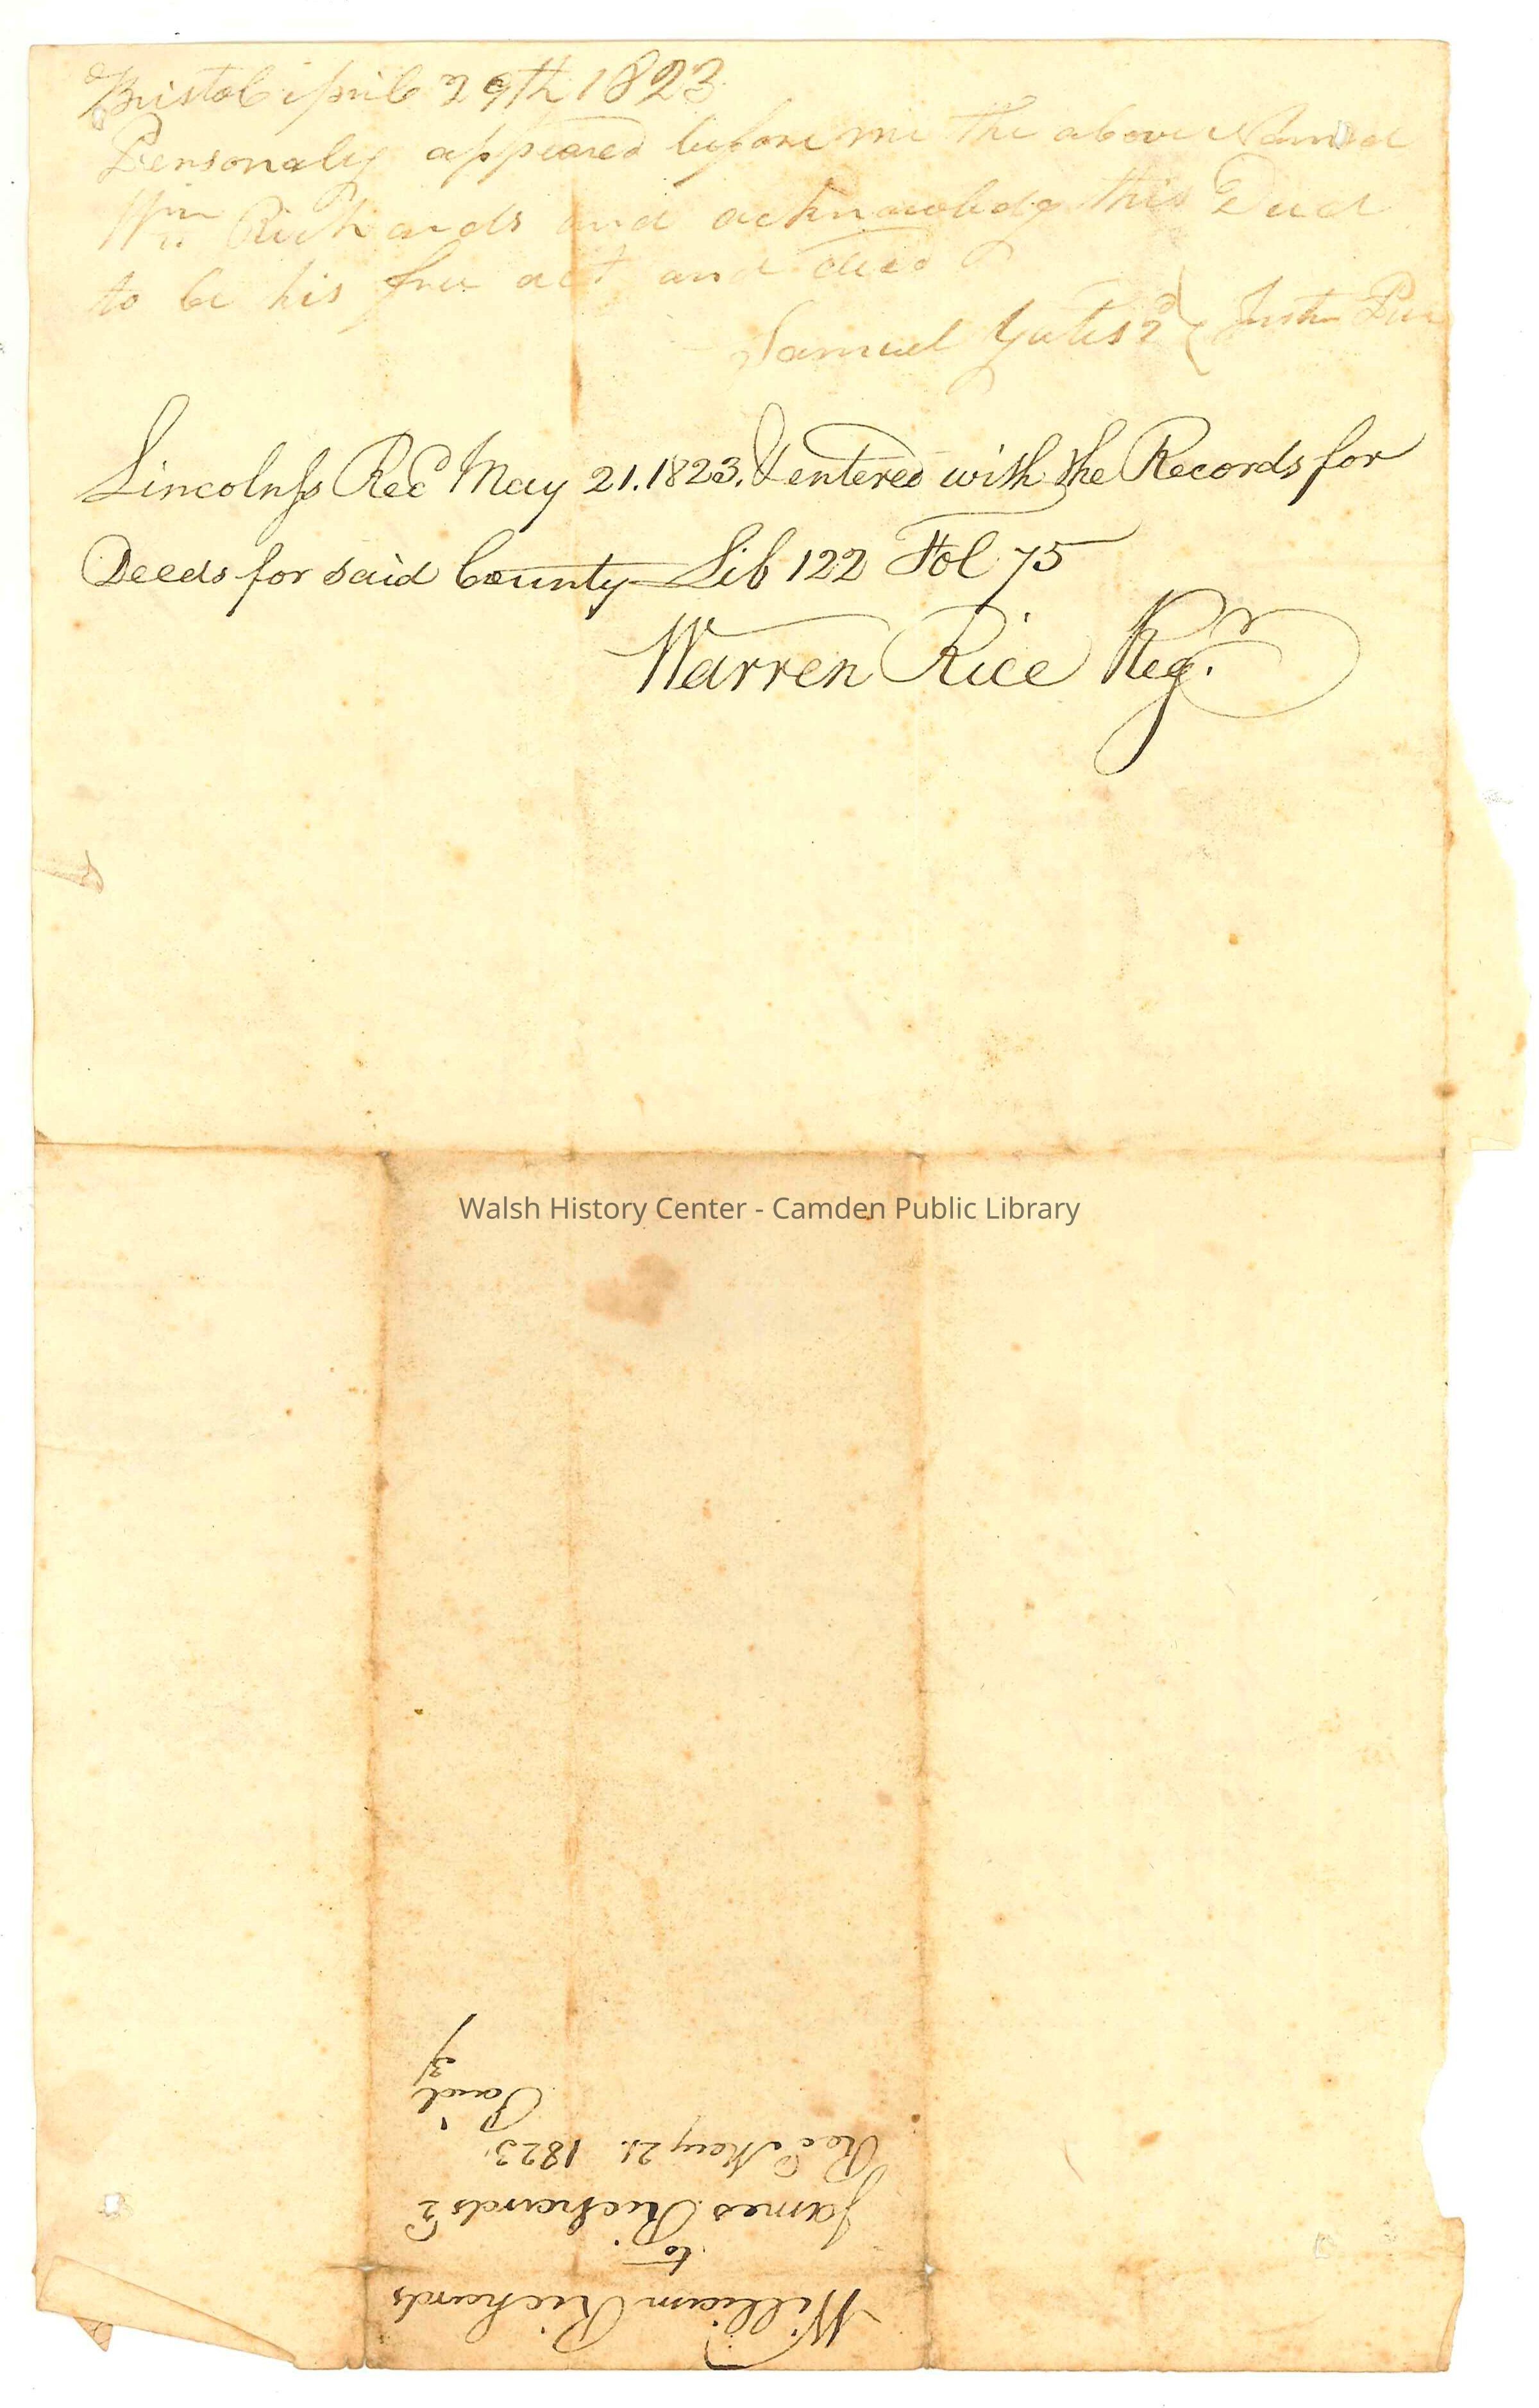 Bristol April 29th 1823
Personaly appeared before me the above Named
Wm Richards and acknawledg this Deed
to be his free act and deed
Samuel Yates 2d Justis Peac
Lincoln ss Recd May 21. 1823. & entered with the Records for
Deeds for said County Lib 122 Fol 75
Warren Rice Regr
Walsh History Center - Camden Public Library
William Richards
to
James Richards 2d
Recd May 21. 1823.
Paid